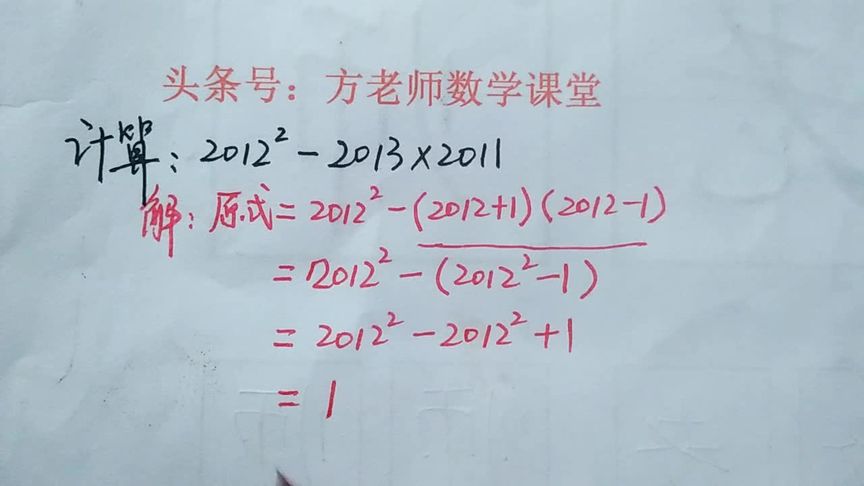 头条号：方老师数学课堂
计算：2012²-2013×2011
解：原式=2012²-(2012+1)(2012-1)
=2012²-(2012²-1)
=2012²-2012²+1
=1